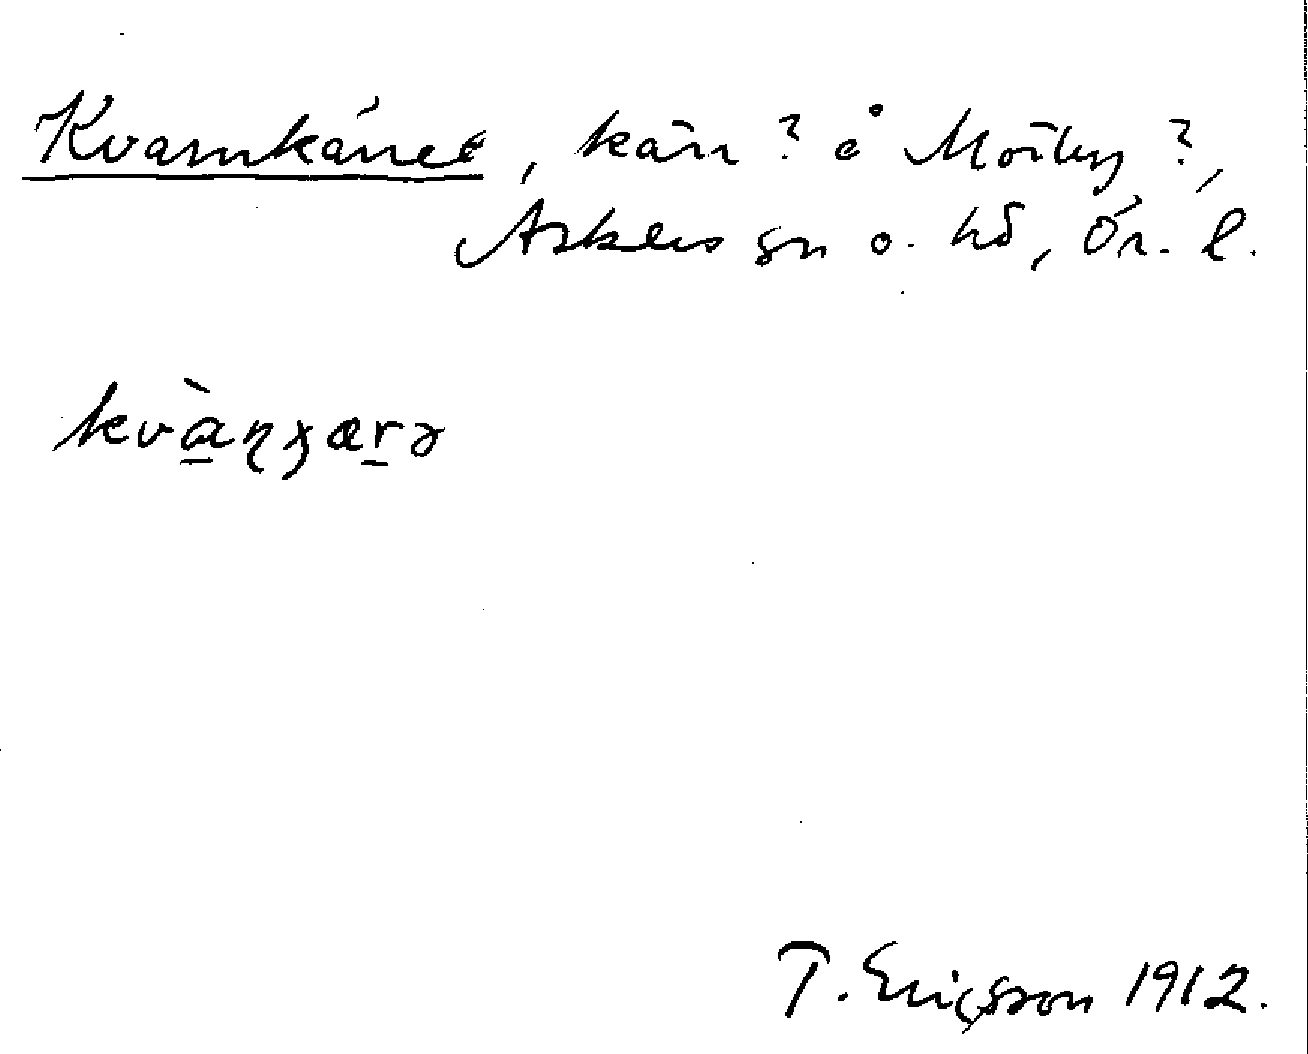 Kvarnkärret, kärr ? å Mörby ?,
Askers sn o. hd, Ör. l.
kvàɳɟæṟə
T. Ericsson 1912.